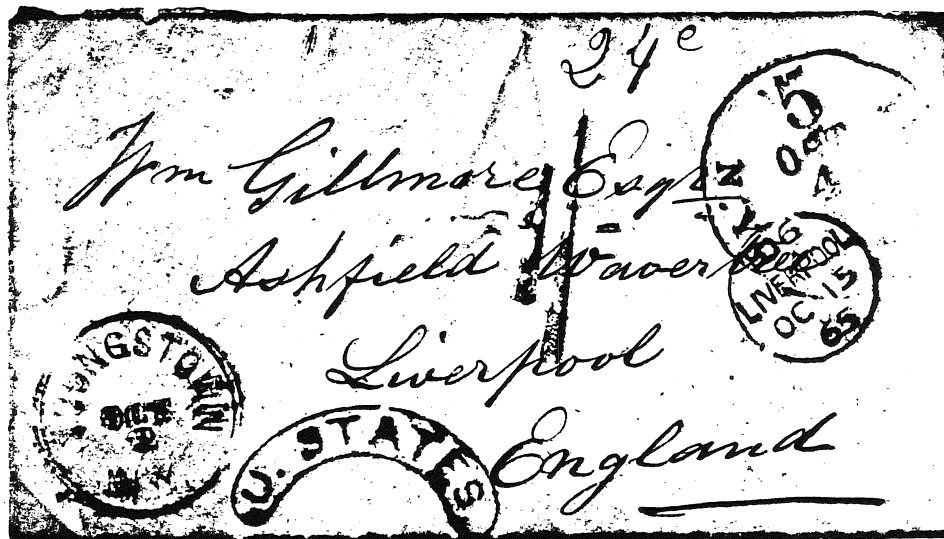 24c
Wm Gillmore Esqr
Ashfield Wavertree
Liverpool
England
5
Oct
4
LIVERPOOL
OC 15
65
OCT
2
U. STATES